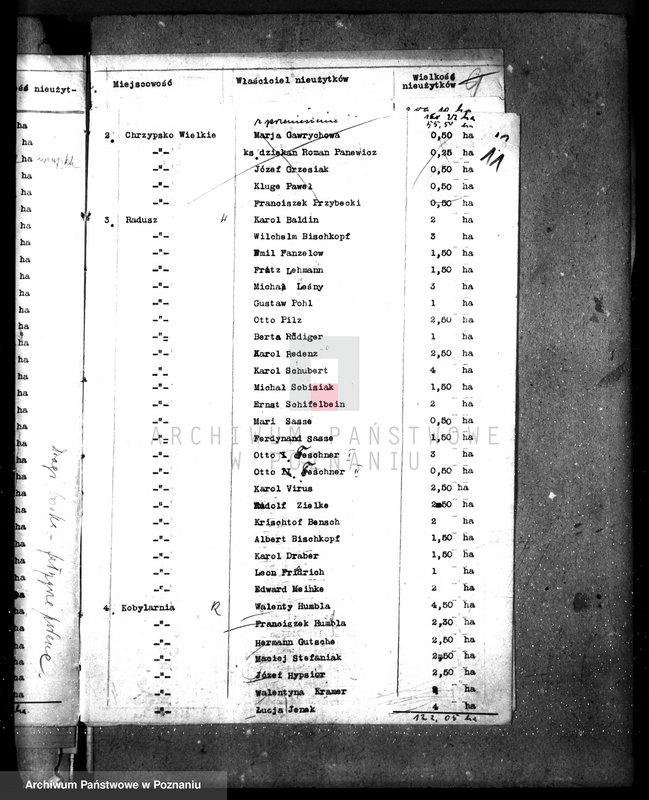 ść nieużyt-
Miejscowość Właściciel nieużytków Wielkość nieużytków
z przeniesienia
11
2. Chrzypsko Wielkie Marja Gawrychowa 0,50 ha
-"- ks dziekan Roman Panewicz 0,25 ha
-"- Józef Grzesiak 0,50 ha
-"- Kluge Paweł 0,50 ha
-"- Franciszek Przybecki 0,50 ha
3. Radusz Karol Baldin 2 ha
-"- Wilchelm Bischkopf 3 ha
-"- Emil Fanzelow 1,50 ha
-"- Fritz Lehmann 1,50 ha
-"- Michał Leśny 3 ha
-"- Gustaw Pohl 1 ha
-"- Otto Pilz 2,50 ha
-"- Berta Rüdiger 1 ha
-"- Karol Redenz 2,50 ha
-"- Karol Schubert 4 ha
-"- Michał Sobisiak 1,50 ha
-"- Ernst Schifelbein 2 ha
-"- Mari Sasse 0,50 ha
-"- Ferdynand Sasse 1,50 ha
-"- Otto Feschner I 3 ha
-"- Otto Feschner II 0,50 ha
-"- Karol Virus 2,50 ha
-"- Rudolf Zielke 2,50 ha
-"- Krischtof Bensch 2 ha
-"- Albert Bischkopf 1,50 ha
-"- Karol Draber 1,50 ha
-"- Leon Fridrich 1 ha
-"- Edward Meihke 2 ha
4. Kobylarnia Walenty Humbla 4,50 ha
-"- Franciszek Humbla 2,30 ha
-"- Hermann Gutsche 2,50 ha
-"- Maciej Stefaniak 2,50 ha
-"- Józef Hypsior 2,50 ha
-"- Walentyna Kramer ha
-"- Łucja Jenek 4 ha
122,05 ha
ARCHIWUM PAŃSTWOWE
W POZNANIU
Archiwum Państwowe w Poznaniu